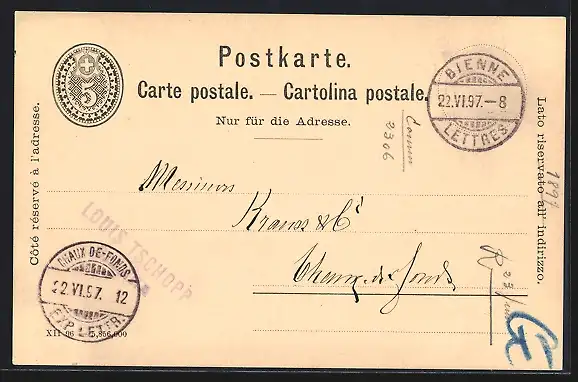 Postkarte.
Carte postale. — Cartolina postale.
Nur für die Adresse.
5
BIENNE
22.VI.97.-8
LETTRES
Côté réservé à l'adresse.
Lato riservato all' indirizzo.
1897
2306
Messieurs
Krauss & Cie
Chaux-de-Fonds
LOUIS TSCHOPP
CHAUX-DE-FONDS
22.VI.97. 12
EXP. LETTR.
XII 96
5,856,000